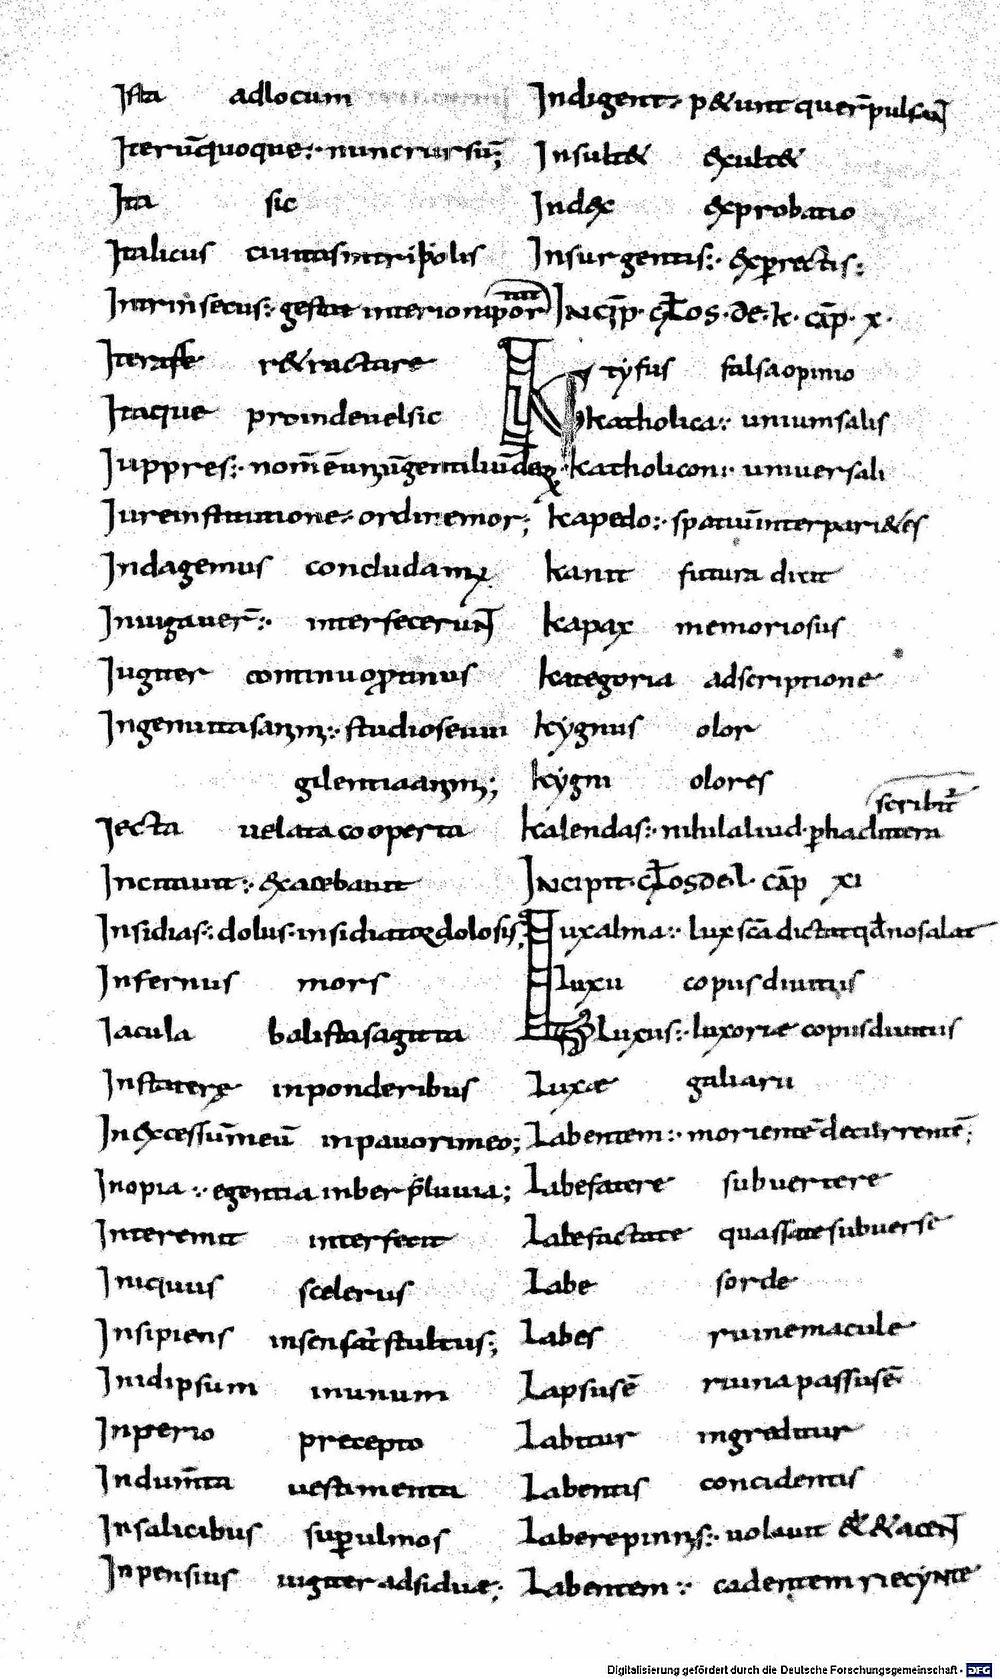 Ista adlocum
Iterū quoque:· nuncrursū;
Ita sic
Italicus ciuitasintripolis
Intrinsecus:· gestat interioratēporū
Iterasse retractare
Itaque proindeuelsic
Iuppres:· nom̄
Iureinstitutione:· ordinemor;
Indagemus concludamꝰ
Iniugauer̄:· interfecerunt
Iugiter continuoprotinus
Ingenuitas animi:· studiose
gilentia animi;
Iecta uelatacooperta
Incitauit:· exacebauit
Insidias:· dolus·insidiatordolosis;
Infernus mors
Iacula balistasagitta
Instatere inponderibus
Inexcessūmeū inpauorimeo;
Inopia:· egentia inberpluuia;
Interemit interfecit
Iniquus scelerus
Insipiens insensat̄ stultus;
Inidipsum inunum
Inperio precepto
Indum̄ta uestimenta
Insalicibus supulmos
Inpensius iugiter adsiduę;
Indigent· p&unt quer̄ pulsant
Insult& exult&
Index exprobatio
Insurgentis:· experrectis:
INcip̄· GŁOS·DE·K· CAP̄· X·
Ktyfus falsaopinio
Katholica:· uniuersalis
Katholicon:· uniuersali
Kapedo:· spatiūinterpari&es
Kanit futura dicit
Kapax memoriosus
Kategoria adscriptione
Kygnus olor
Kygni olores
scribit̄
Kalendas:· nihilaliud·phaclittera
INCIPIT·GŁOSDEL· CAP̄ XI
Luxalma:· lux sc̄a dictat qđ nosalat
Luxu copiisdiuitiis
Luxus:· luxoriæ copiisdiuitiis
Luxæ galiarii
Labentem:· morientē decurrentē;
Labefatere subuertere
Labefactate quassatesubuerse
Labe sorde
Labes ruinemacule
Lapsusē ruinapassusē
Labitur ingreditur
Labentis concidentis
Laberepinnis:· uolauit &
Labentem:· cadentem recynte